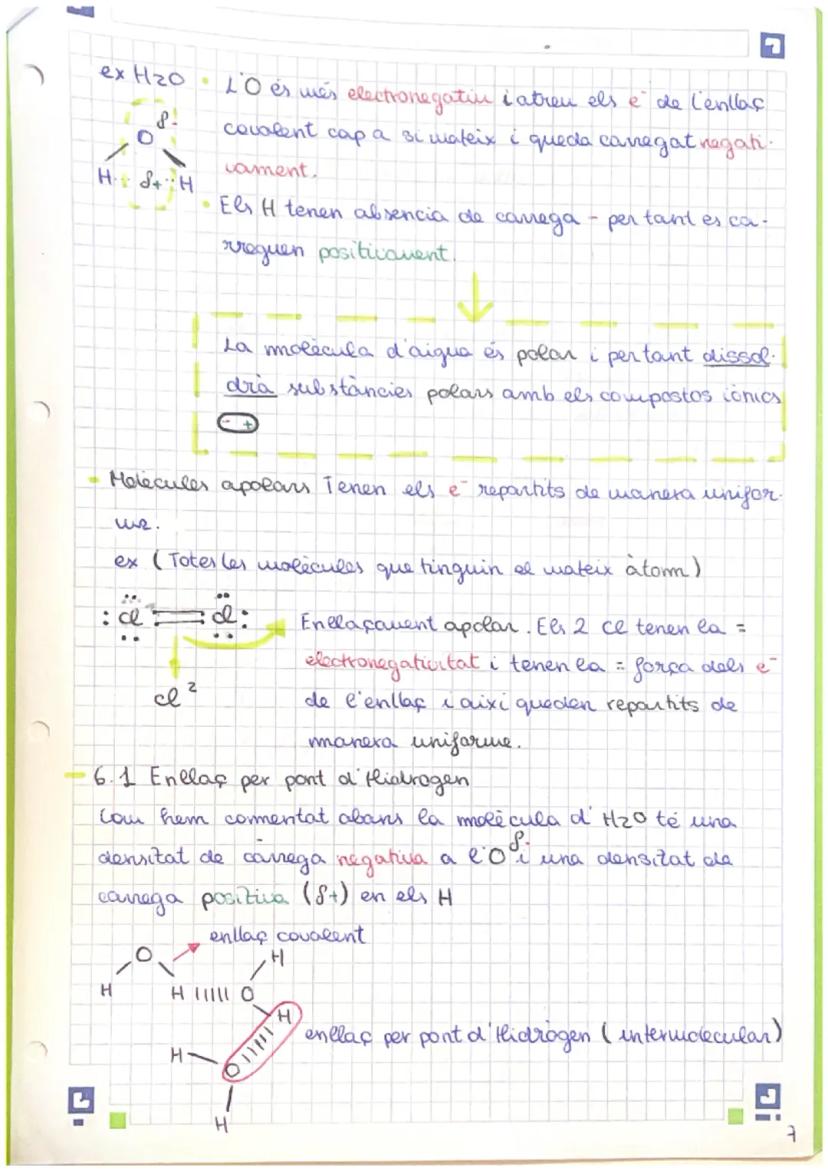 ex H2O • L'O és més electronegatiu i atreu els e⁻ de l'enllaç
covalent cap a si mateix i queda carregat negati-
vament.
δ-
O
H δ+ H
• Els H tenen absencia de carrega - per tant es ca-
rreguen positivament.
La molècula d'aigua és polar i pertant dissol-
drà substàncies polars amb els compostos iònics
- +
- Molècules apolars Tenen els e⁻ repartits de manera unifor-
me.
ex (Totes les molècules que tinguin el mateix àtom)
: Cl = Cl :
Enllaçament apolar. Els 2 Cl tenen la =
electronegativitat i tenen la = força dels e⁻
Cl²
de l'enllaç i així queden repartits de
manera uniforme.
- 6.1 Enllaç per pont d'Hidrogen
Com hem commentat abans la molècula d'H2O té una
densitat de càrrega negativa a l'O δ- i una densitat de
carrega positiva (δ+) en els H
enllaç covalent
O H
H H IIIII O
H
enllaç per pont d'Hidrògen (intermolecular)
H O
H
7